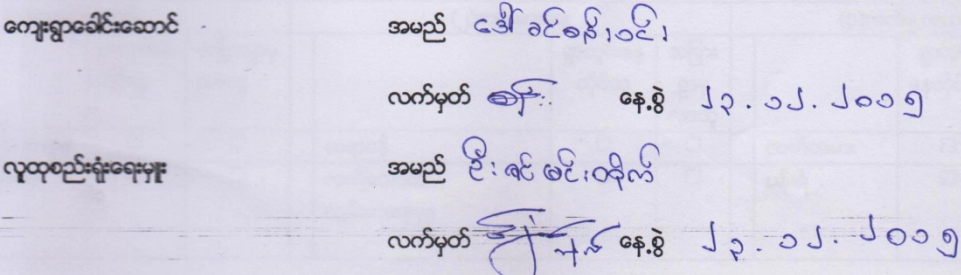 ကျေးရွာခေါင်းဆောင် အမည် ဒေါ်ခင်စန်းဝင်း
လက်မှတ် စန်း နေ့စွဲ ၂၃.၁၂.၂၀၁၅
လူထုစည်းရုံးရေးမှူး အမည် ဦးဇင်မင်းထိုက်
လက်မှတ် နေ့စွဲ ၂၃.၁၂.၂၀၁၅